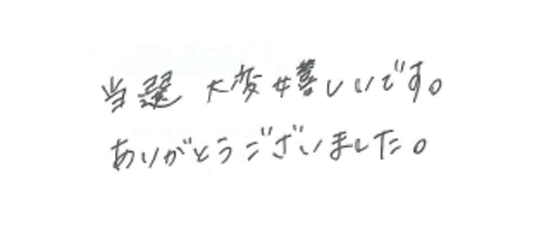 当選 大変嬉しいです。
ありがとうございました。